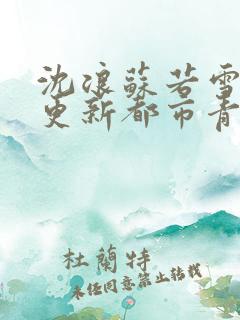 沈浪蘇若雪
更新都市青
杜蘭特
未經同意禁止轉載